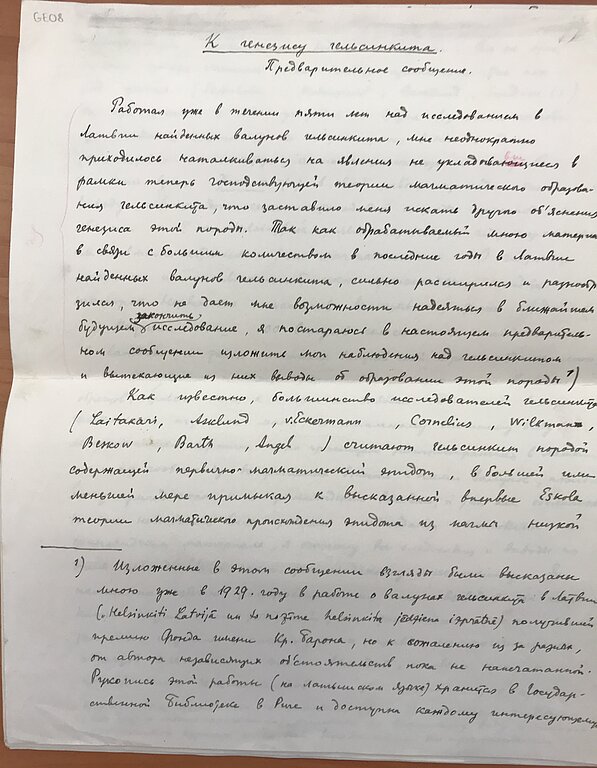 GE08
К генезису гельсинкита.
Предварительное сообщение.
Работая уже в течении пяти лет над исследованием в
Латвии найденных валунов гельсинкита, мне неоднократно
приходилось наталкиваться на явления не укладывающиеся в
рамки теперь господствующей теории магматического образова-
ния гельсинкита, что заставило меня искать другого об'яснения
генезиса этой породы. Так как обрабатываемый мною материа
в связи с большим количеством в последние годы в Латвии
найденных валунов гельсинкита, сильно расширился и разнооб
зился, что не дает мне возможности надеяться в ближайшем
закончить
будущем исследование, я постараюсь в настоящем предваритель-
ном сообщении изложить мои наблюдения над гельсинкитом
и вытекающие из них выводы об образовании этой породы 1)
Как известно, большинство исследователей гельсинкита
(Laitakari, Asklund, v.Eckermann, Cornelius, Wilkman,
Beskow, Barth, Angel) считают гельсинкит породой
содержащей первично-магматический эпидот, в большей или
меньшей мере примыкая к высказанной впервые Eskola
теории магматического происхождения эпидота из магмы низкой
1) Изложенные в этом сообщении взгляды были высказаны
мною уже в 1929. году в работе о валунах гельсинкита в Латвии
(„Helsinkiti Latvijā un to nozīme helsinkita jēdziena izpratnē) получившей
премию Фонда имени Кр. Барона, но к сожалению из за разных,
от автора независящих обстоятельств пока не напечатанной.
Рукопись этой работы (на латышском языке) хранится в Государ-
ственной Библиотеке в Риге и доступна каждому интересующемуся